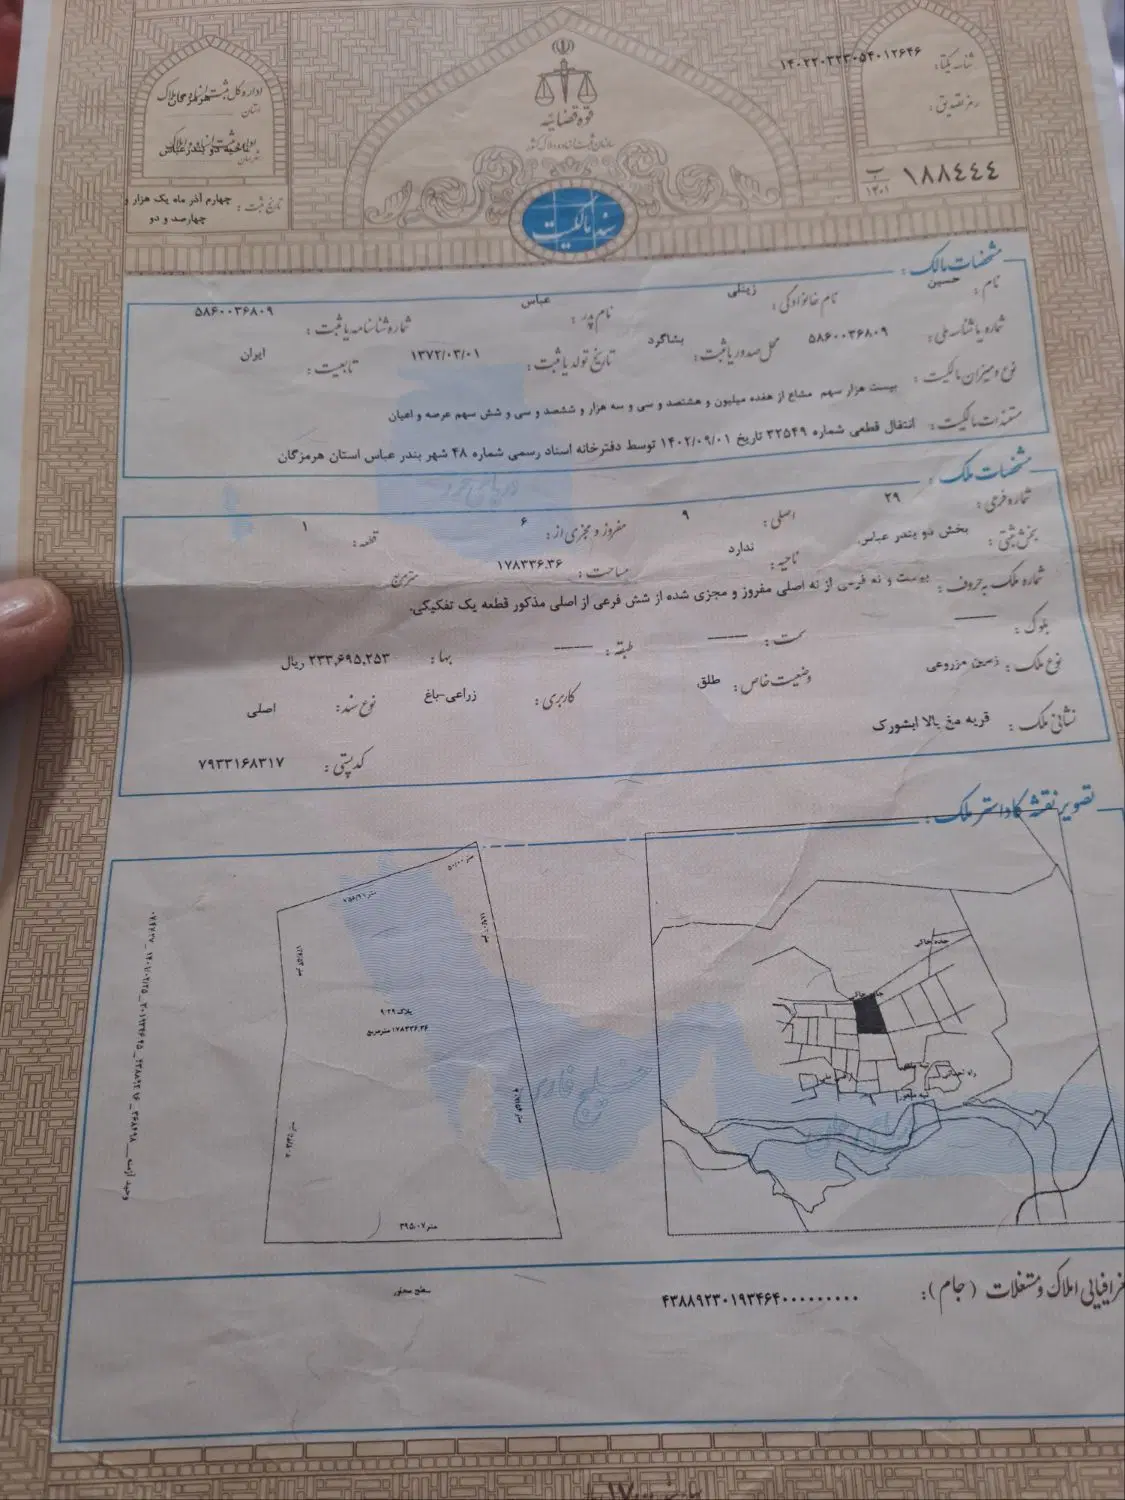 شناسه یکتا: ۱۴۰۲۲۰۳۲۳۰۵۴۰۱۲۶۴۶
رمز تصدیق:
۱۸۸٤٤٤ ب ۱۴۰۱
قوه قضائیه
سازمان ثبت اسناد و املاک کشور
سند مالکیت
اداره کل ثبت اسناد و املاک
استان هرمزگان
ناحیه دو بندرعباس
تاریخ ثبت: چهارم آذر ماه یک هزار و
چهارصد و دو
مشخصات مالک:
نام: حسین نام خانوادگی: زینلی نام پدر: عباس شماره شناسنامه یا ثبت: ۵۸۶۰۰۳۶۸۰۹
شماره یا شناسه ملی: ۵۸۶۰۰۳۶۸۰۹ محل صدور یا ثبت: بشاگرد تاریخ تولد یا ثبت: ۱۳۷۲/۰۳/۰۱ تابعیت: ایران
نوع و میزان مالکیت: بیست هزار سهم مشاع از هفده میلیون و هشتصد و سی و سه هزار و ششصد و سی و شش سهم عرصه و اعیان
مستندات مالکیت: انتقال قطعی شماره ۳۲۵۴۹ تاریخ ۱۴۰۲/۰۹/۰۱ توسط دفترخانه اسناد رسمی شماره ۴۸ شهر بندر عباس استان هرمزگان
مشخصات ملک:
شماره فرعی: ۲۹ اصلی: ۹ مفروز و مجزی از: ۶ قطعه: ۱
بخش ثبتی: بخش دو بندر عباس ناحیه: ندارد مساحت: ۱۷۸۳۳۶.۳۶ مترمربع
شماره ملک به حروف: بیست و نه فرعی از نه اصلی مفروز و مجزی شده از شش فرعی از اصلی مذکور قطعه یک تفکیکی.
بلوک: سمت: طبقه: بها: ۲۳۳,۶۹۵,۲۵۳ ریال
نوع ملک: زمین مزروعی وضعیت خاص: طلق کاربری: زراعی-باغ نوع سند: اصلی
نشانی ملک: قریه مغ بالا ایشورک کدپستی: ۷۹۳۳۱۶۸۳۱۷
تصویر نقشه کاداستر ملک:
دریای خزر
خلیج فارس
جاده خاکی
پلاک ۹/۲۹
۱۷۸۳۳۶.۳۶ مترمربع
۳۹۵/۰۷ متر
سطح محتور
جغرافیایی املاک و مستغلات (جام): ۴۳۸۸۹۲۳۰۱۹۳۴۶۴۰۰۰۰۰۰۰۰۰۰